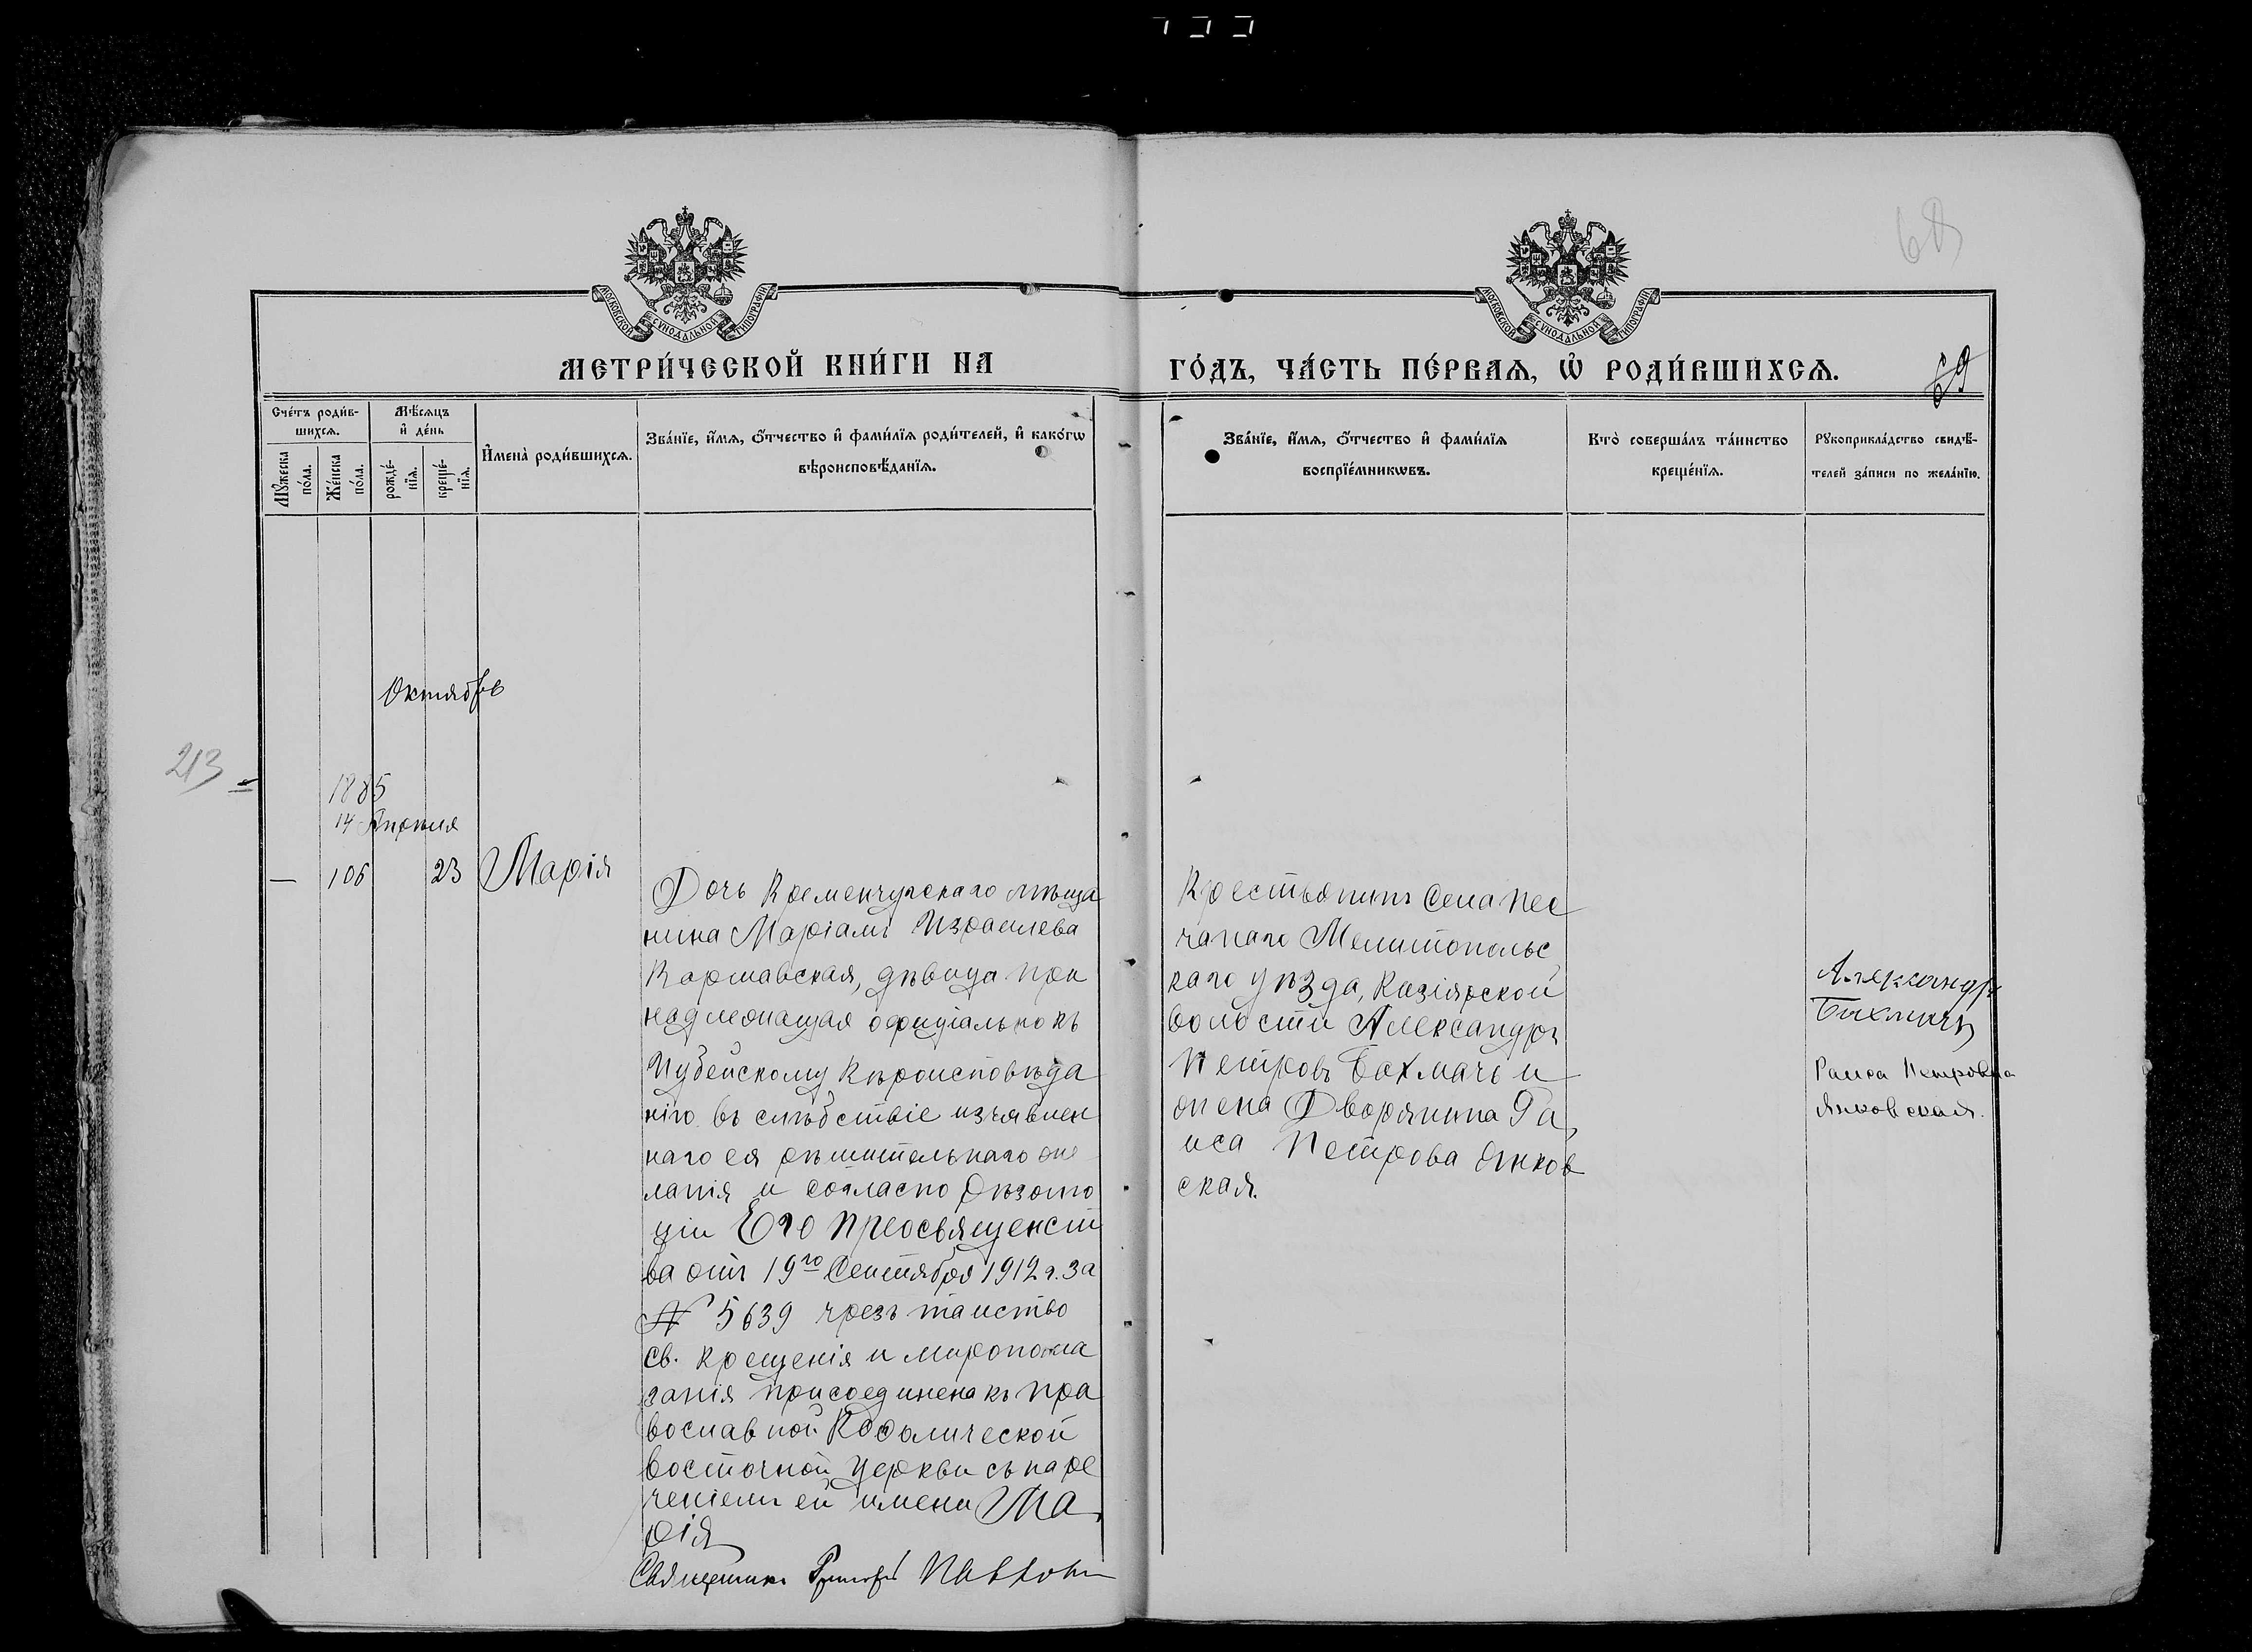 68
МОСКОВСКОЙ СУНОДАЛЬНОЙ ТИПОГРАФІИ
МОСКОВСКОЙ СУНОДАЛЬНОЙ ТИПОГРАФІИ
МЕТРИ́ЧЕСКОЙ КНИ́ГИ НА
ГО́ДЪ, ЧА́СТЬ ПЕ́РВАѦ, Ѡ҆ РОДИ́ВШИХСѦ.
69
Сче́тъ роди́в-
шихсѧ.
Мѣ́сѧцъ
и҆ де́нь
Мꙋ́жеска
по́ла.
Же́нска
по́ла.
рожде́-
нїѧ.
креще́-
нїѧ.
И҆мена̀ роди́вшихсѧ.
Зва́нїе, и҆́мѧ, ѻ҆́тчество и҆ фами́лїѧ роди́телей, и҆ како́гѡ
вѣроисповѣ́данїѧ.
Зва́нїе, и҆́мѧ, ѻ҆́тчество и҆ фами́лїѧ
воспрїе́мникѡвъ.
Кто̀ соверша́лъ та́инство
креще́нїѧ.
Рꙋкоприкла́дство свидѣ́-
телей за́писи по жела́нїю.
Октябрь
213
1885
14 Апрѣля
— 106 23 Марія
Дочь Кременчугскаго мѣща
нина Маріамъ Израилева
Каршавская, дѣвица при
надлежащая официіально къ
Иудейскому вѣроисповѣда
нію въ слѣдствіе изъявлен
наго ея рѣшительнаго же
ланія и согласно резолю
ціи Его Преосвященст
ва отъ 19го Сентября 1912 г. за
№ 5639 чрезъ таинство
св. крещенія и миропома
занія присоединена къ пра
вославной Каѳолической
восточной церкви съ наре
ченіемъ ей имени Ма
рія
Священникъ Григорій Павловъ
Крестьянинъ села Пес
чанаго Мелитопольс
каго уѣзда, Кизіярской
волости Александръ
Петровъ Бахмачъ и
жена Дворянина Ра
иса Петрова Янков
ская.
Александръ
Бахмачъ
Раиса Петровна
Янковская.